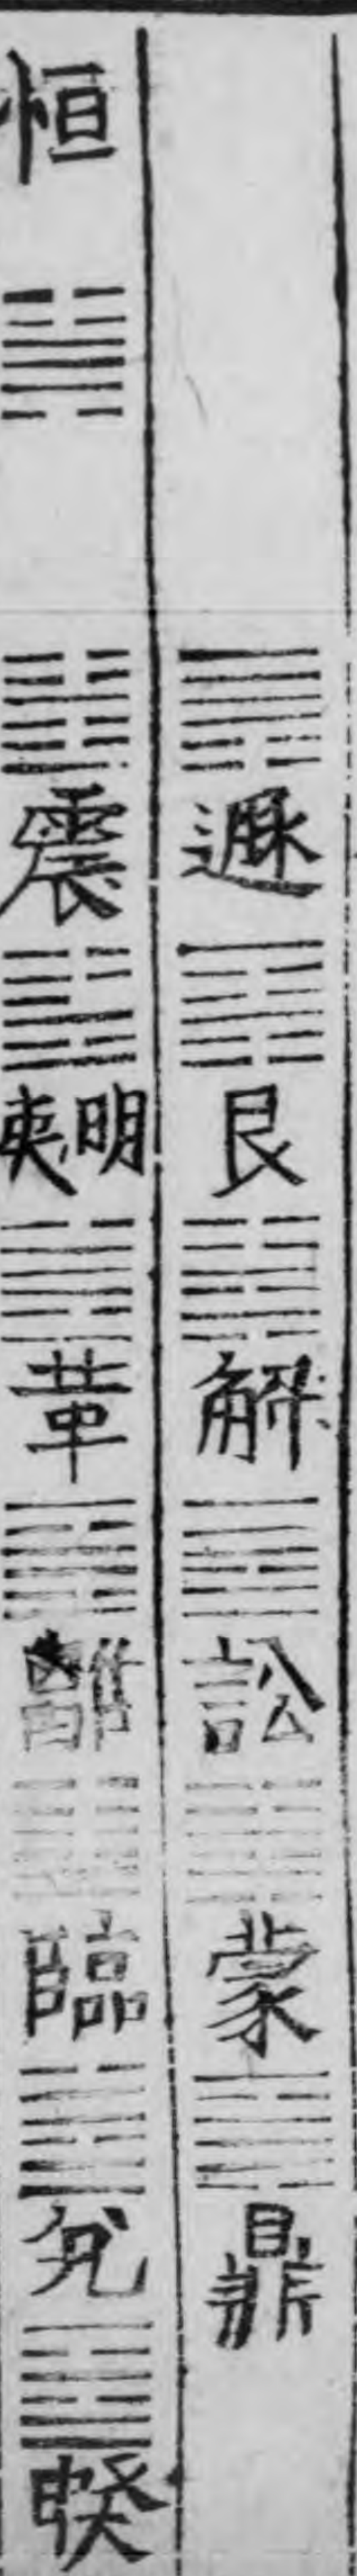 遯 艮 解 訟 蒙 鼎
恒 震 明夷 革 離 臨 兌 睽